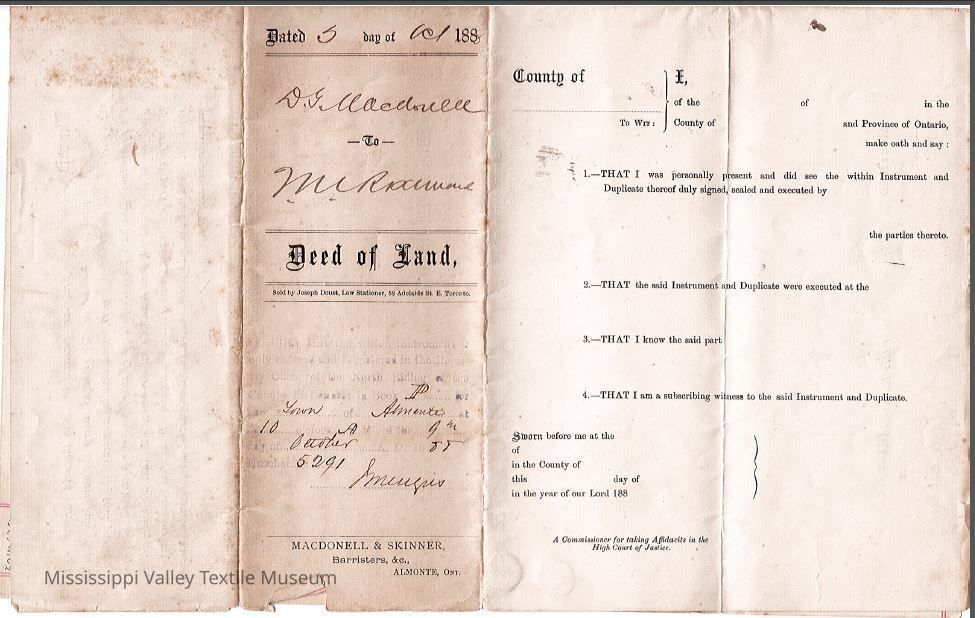 Dated 5 day of Oct 188
D. G. Macdonell
—To—
Deed of Land,
Sold by Joseph Doust, Law Stationer, 58 Adelaide St. E. Toronto.
that the within Instrument
and Registered in the
Office of the North Riding of the
Town Almonte
10 A 9th
October 85
5291
MACDONELL & SKINNER,
Barristers, &c.,
ALMONTE, ONT.
Mississippi Valley Textile Museum
County of
To Wit:
I,
of the of in the
County of and Province of Ontario,
make oath and say:
1.—THAT I was personally present and did see the within Instrument and
Duplicate thereof duly signed, sealed and executed by
the parties thereto.
2.—THAT the said Instrument and Duplicate were executed at the
3.—THAT I know the said part
4.—THAT I am a subscribing witness to the said Instrument and Duplicate.
Sworn before me at the
of
in the County of
this day of
in the year of our Lord 188
A Commissioner for taking Affidavits in the
High Court of Justice.